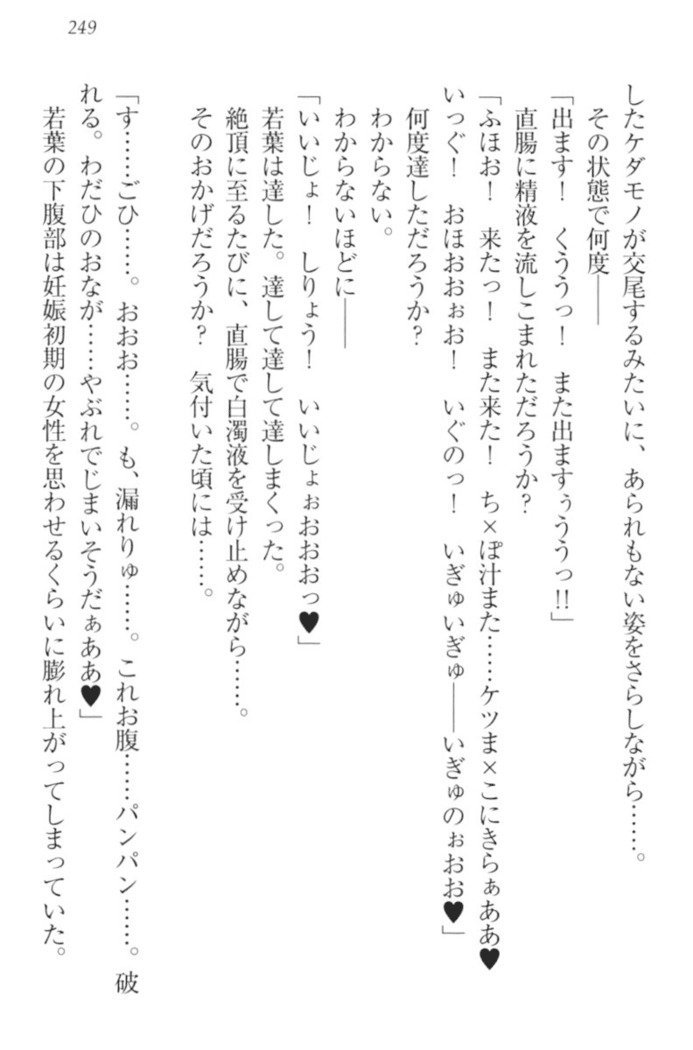 249
したケダモノが交尾するみたいに、あられもない姿をさらしながら……。
その状態で何度――
「出ます！　くううっ！　また出ますぅううっ!!」
直腸に精液を流しこまれただろうか？
「ふほお！　来たっ！　また来た！　ち×ぽ汁また……ケツま×こにきらぁああ♥
いっぐ！　おほおおぉお！　いぐのっ！　いぎゅいぎゅ――いぎゅのぉおお♥」
何度達しただろうか？
わからない。
わからないほどに――
「いいじょ！　しりょう！　いいじょぉおおおっ♥」
若葉は達した。達して達しまくった。
絶頂に至るたびに、直腸で白濁液を受け止めながら……。
そのおかげだろうか？　気付いた頃には……。
「す……ごひ……。おおお……。も、漏れりゅ……。これお腹……パンパン……。破
れる。わだひのおなが……やぶれでじまいそうだぁああ♥」
若葉の下腹部は妊娠初期の女性を思わせるくらいに膨れ上がってしまっていた。